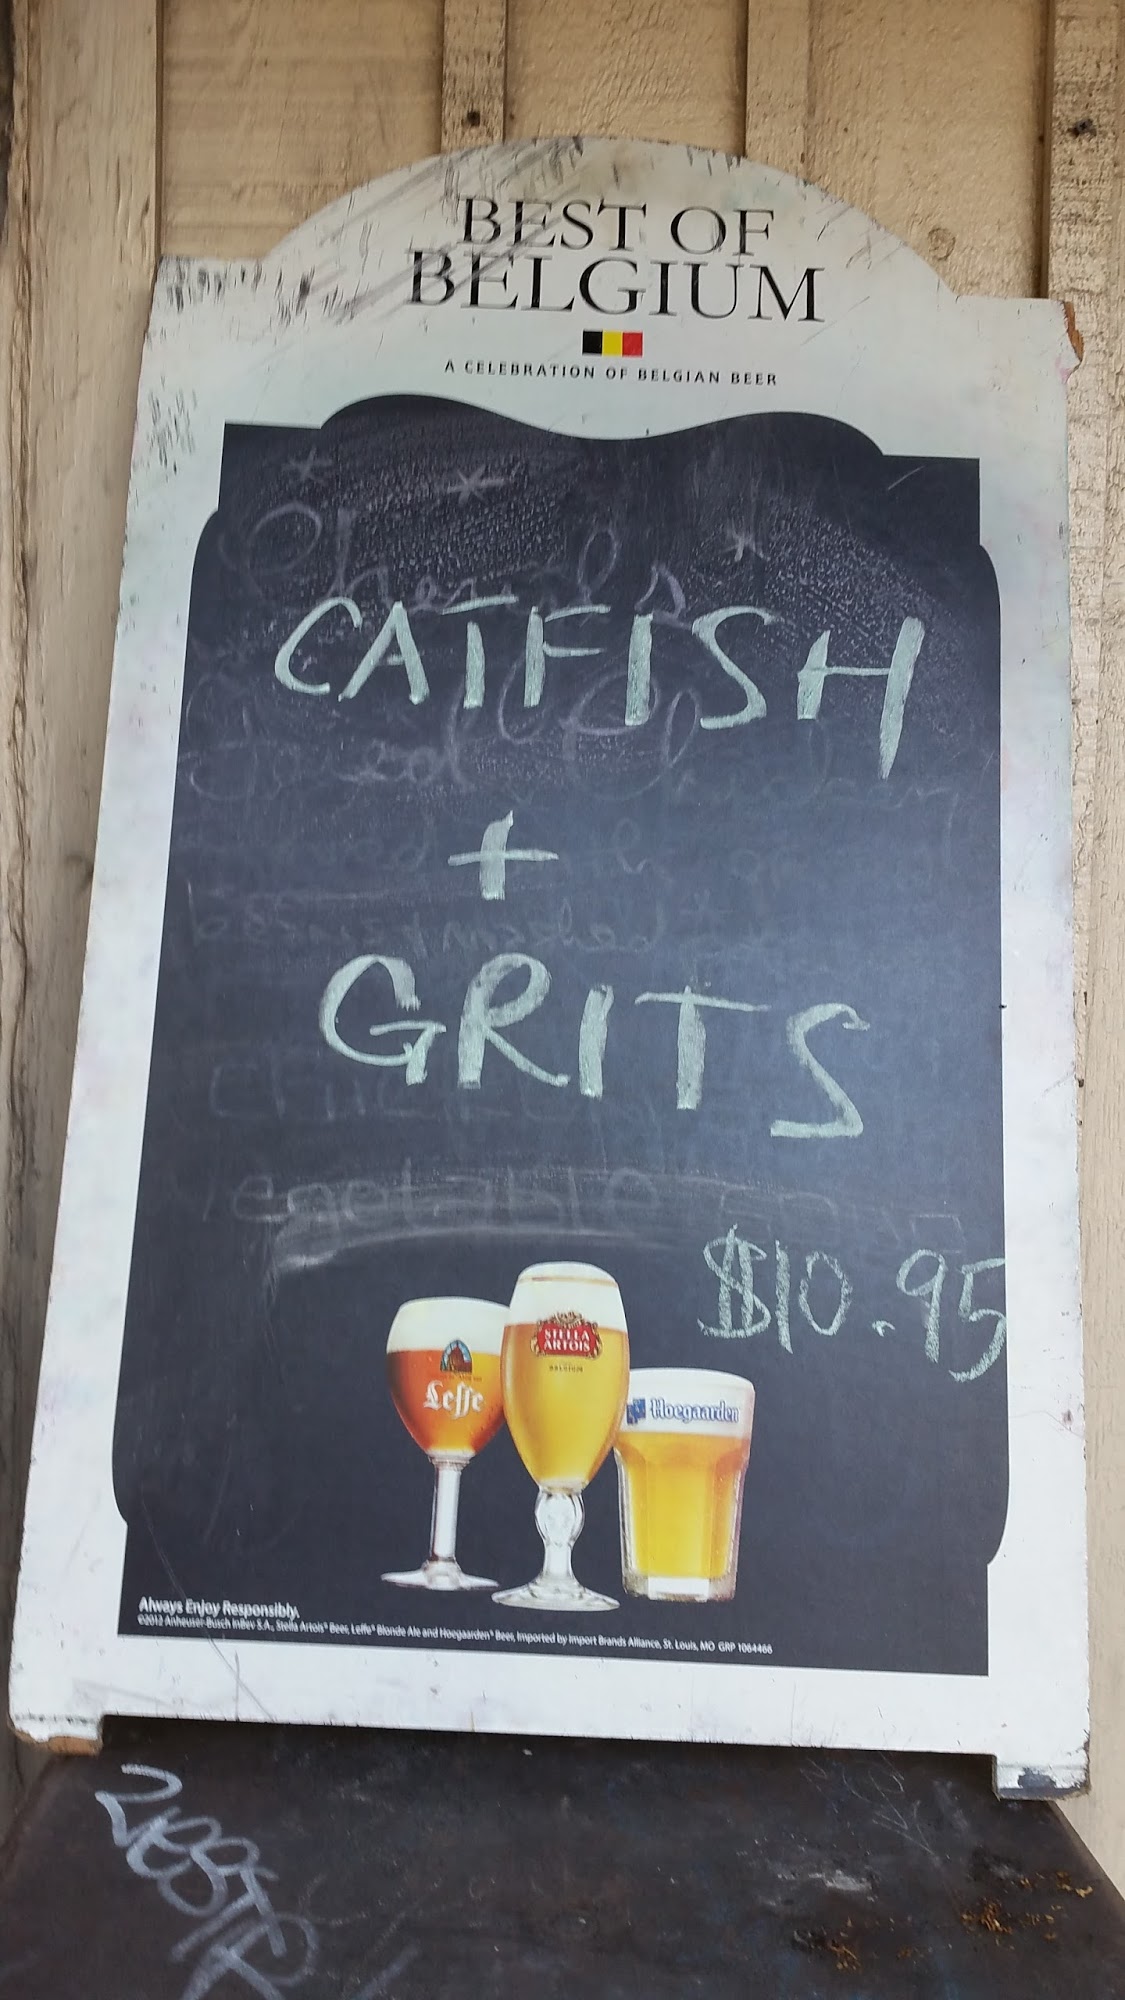 BEST OF
BELGIUM
A CELEBRATION OF BELGIAN BEER
CATFISH
+
GRITS
Vegetable
$10.95
Leffe
STELLA
ARTOIS
BELGIUM
Hoegaarden
Always Enjoy Responsibly.
©2012 Anheuser-Busch InBev S.A., Stella Artois® Beer, Leffe® Blonde Ale and Hoegaarden® Beer, Imported by Import Brands Alliance, St. Louis, MO GRP 1064466